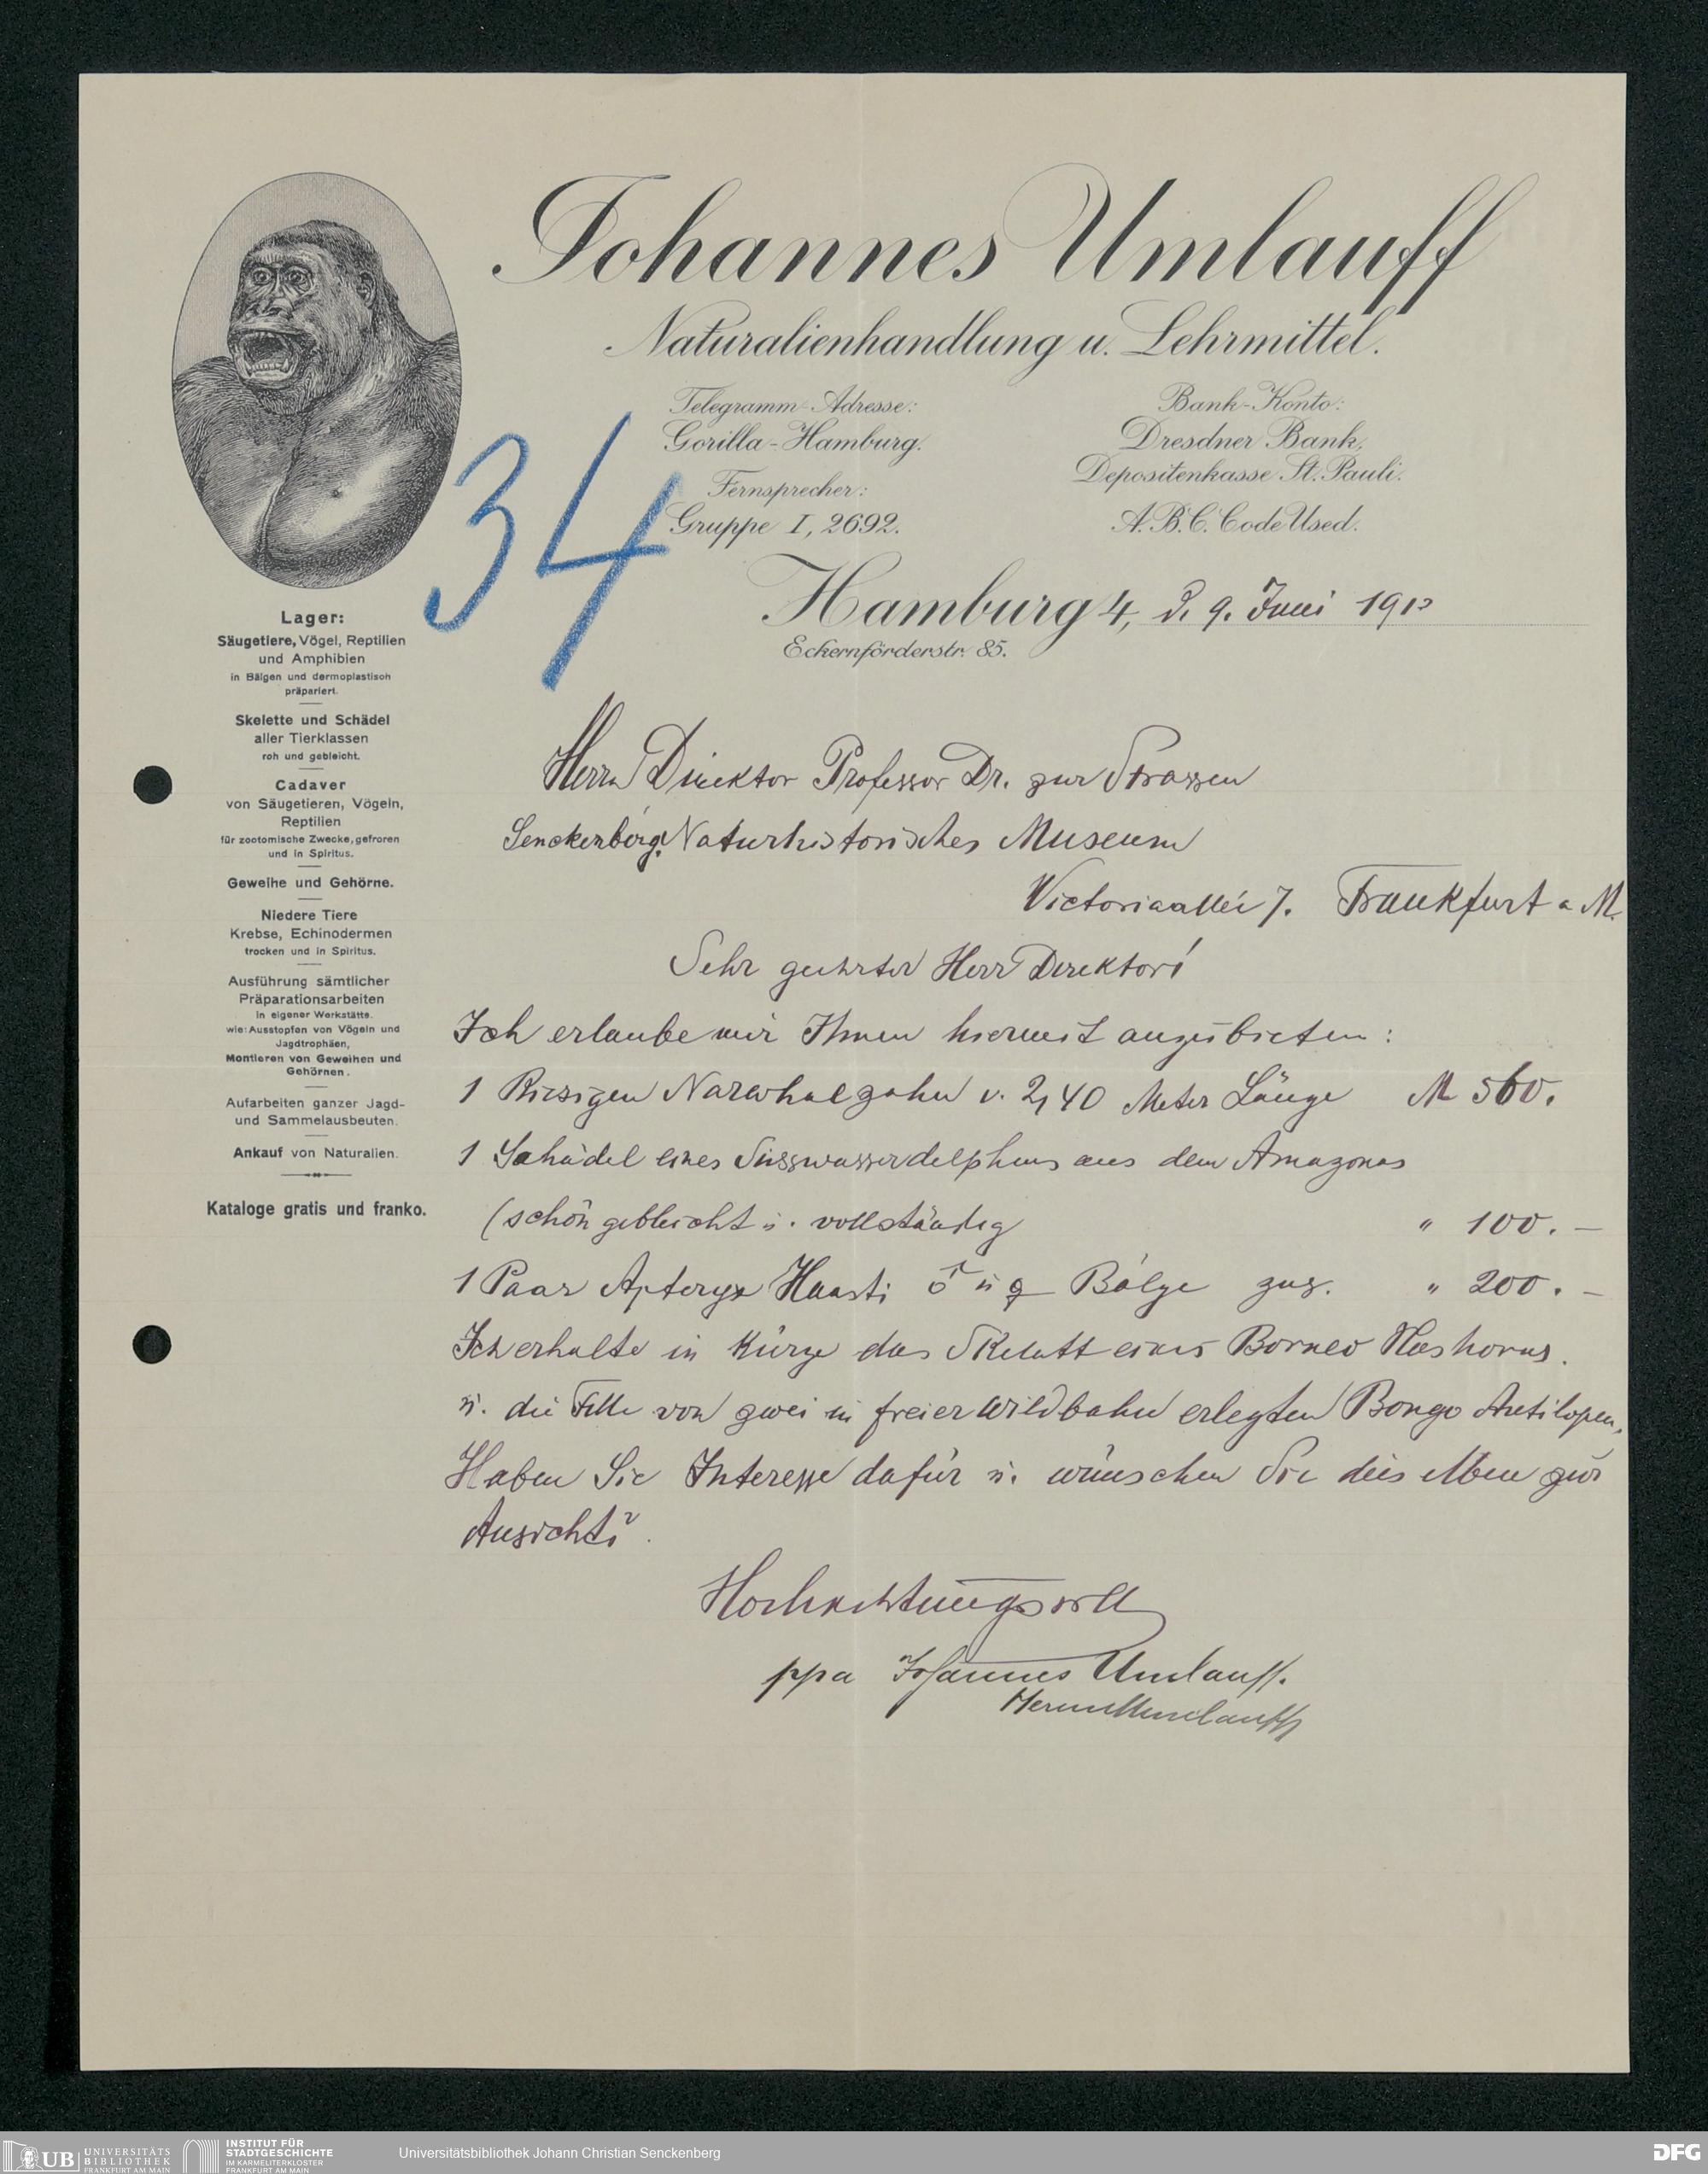 Johannes Umlauff
Naturalienhandlung u. Lehrmittel.
Telegramm-Adresse:
Gorilla-Hamburg.
Fernsprecher:
Gruppe I, 2692.
Bank-Konto:
Dresdner Bank,
Depositenkasse St. Pauli.
A.B.C. Code Used.
34
Hamburg 4, d. 9. Juni 191
Eckernförderstr. 85.
Lager:
Säugetiere, Vögel, Reptilien
und Amphibien
in Bälgen und dermoplastisch
präpariert.
Skelette und Schädel
aller Tierklassen
roh und gebleicht.
Cadaver
von Säugetieren, Vögeln,
Reptilien
für zootomische Zwecke, gefroren
und in Spiritus.
Geweihe und Gehörne.
Niedere Tiere
Krebse, Echinodermen
trocken und in Spiritus.
Ausführung sämtlicher
Präparationsarbeiten
in eigener Werkstätte.
wie: Ausstopfen von Vögeln und
Jagdtrophäen,
Montieren von Geweihen und
Gehörnen.
Aufarbeiten ganzer Jagd-
und Sammelausbeuten.
Ankauf von Naturalien.
Kataloge gratis und franko.
Herrn Direktor Professor Dr. zur Strassen
Senckenberg. Naturhistorisches Museum
Victoriaallee 7. Frankfurt a M.
Sehr geehrter Herr Direktor!
Ich erlaube mir Ihnen hiermit anzubieten:
1 Riesigen Narwhalzahn v. 2,40 Meter Länge M 560.
1 Schädel eines Süsswasserdelphins aus dem Amazonas
(schön gebleicht u. vollständig " 100.—
1 Paar Apteryx Haasti ♂ u ♀ Bälge zus. " 200.—
Ich erhalte in Kürze das Skelett eines Borneo Nashorns.
u. die Felle von zwei in freier Wildbahn erlegten Bongo Antilopen,
Haben Sie Interesse dafür u. wünschen Sie dieselben zur
Ansicht?
Hochachtungsvoll
ppa Johannes Umlauff.
Umlauff
UB UNIVERSITÄTS
BIBLIOTHEK
FRANKFURT AM MAIN
INSTITUT FÜR
STADTGESCHICHTE
IM KARMELITERKLOSTER
FRANKFURT AM MAIN
Universitätsbibliothek Johann Christian Senckenberg
DFG